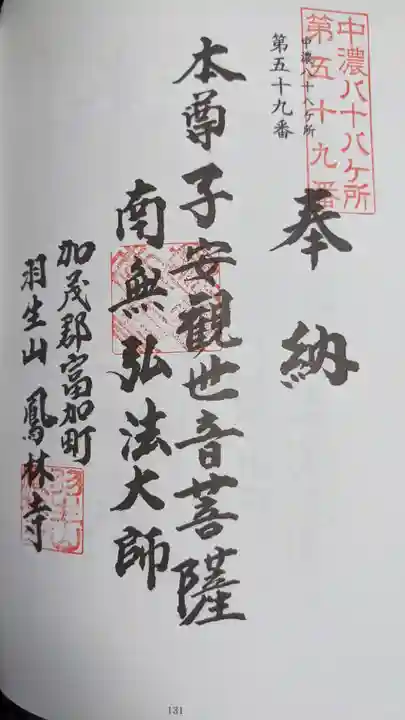 中濃八十八ヶ所
第五十九番
中濃八十八ヶ所
第五十九番
奉納
本尊子安観世音菩薩
南無弘法大師
加茂郡富加町
羽生山 鳳林寺
131